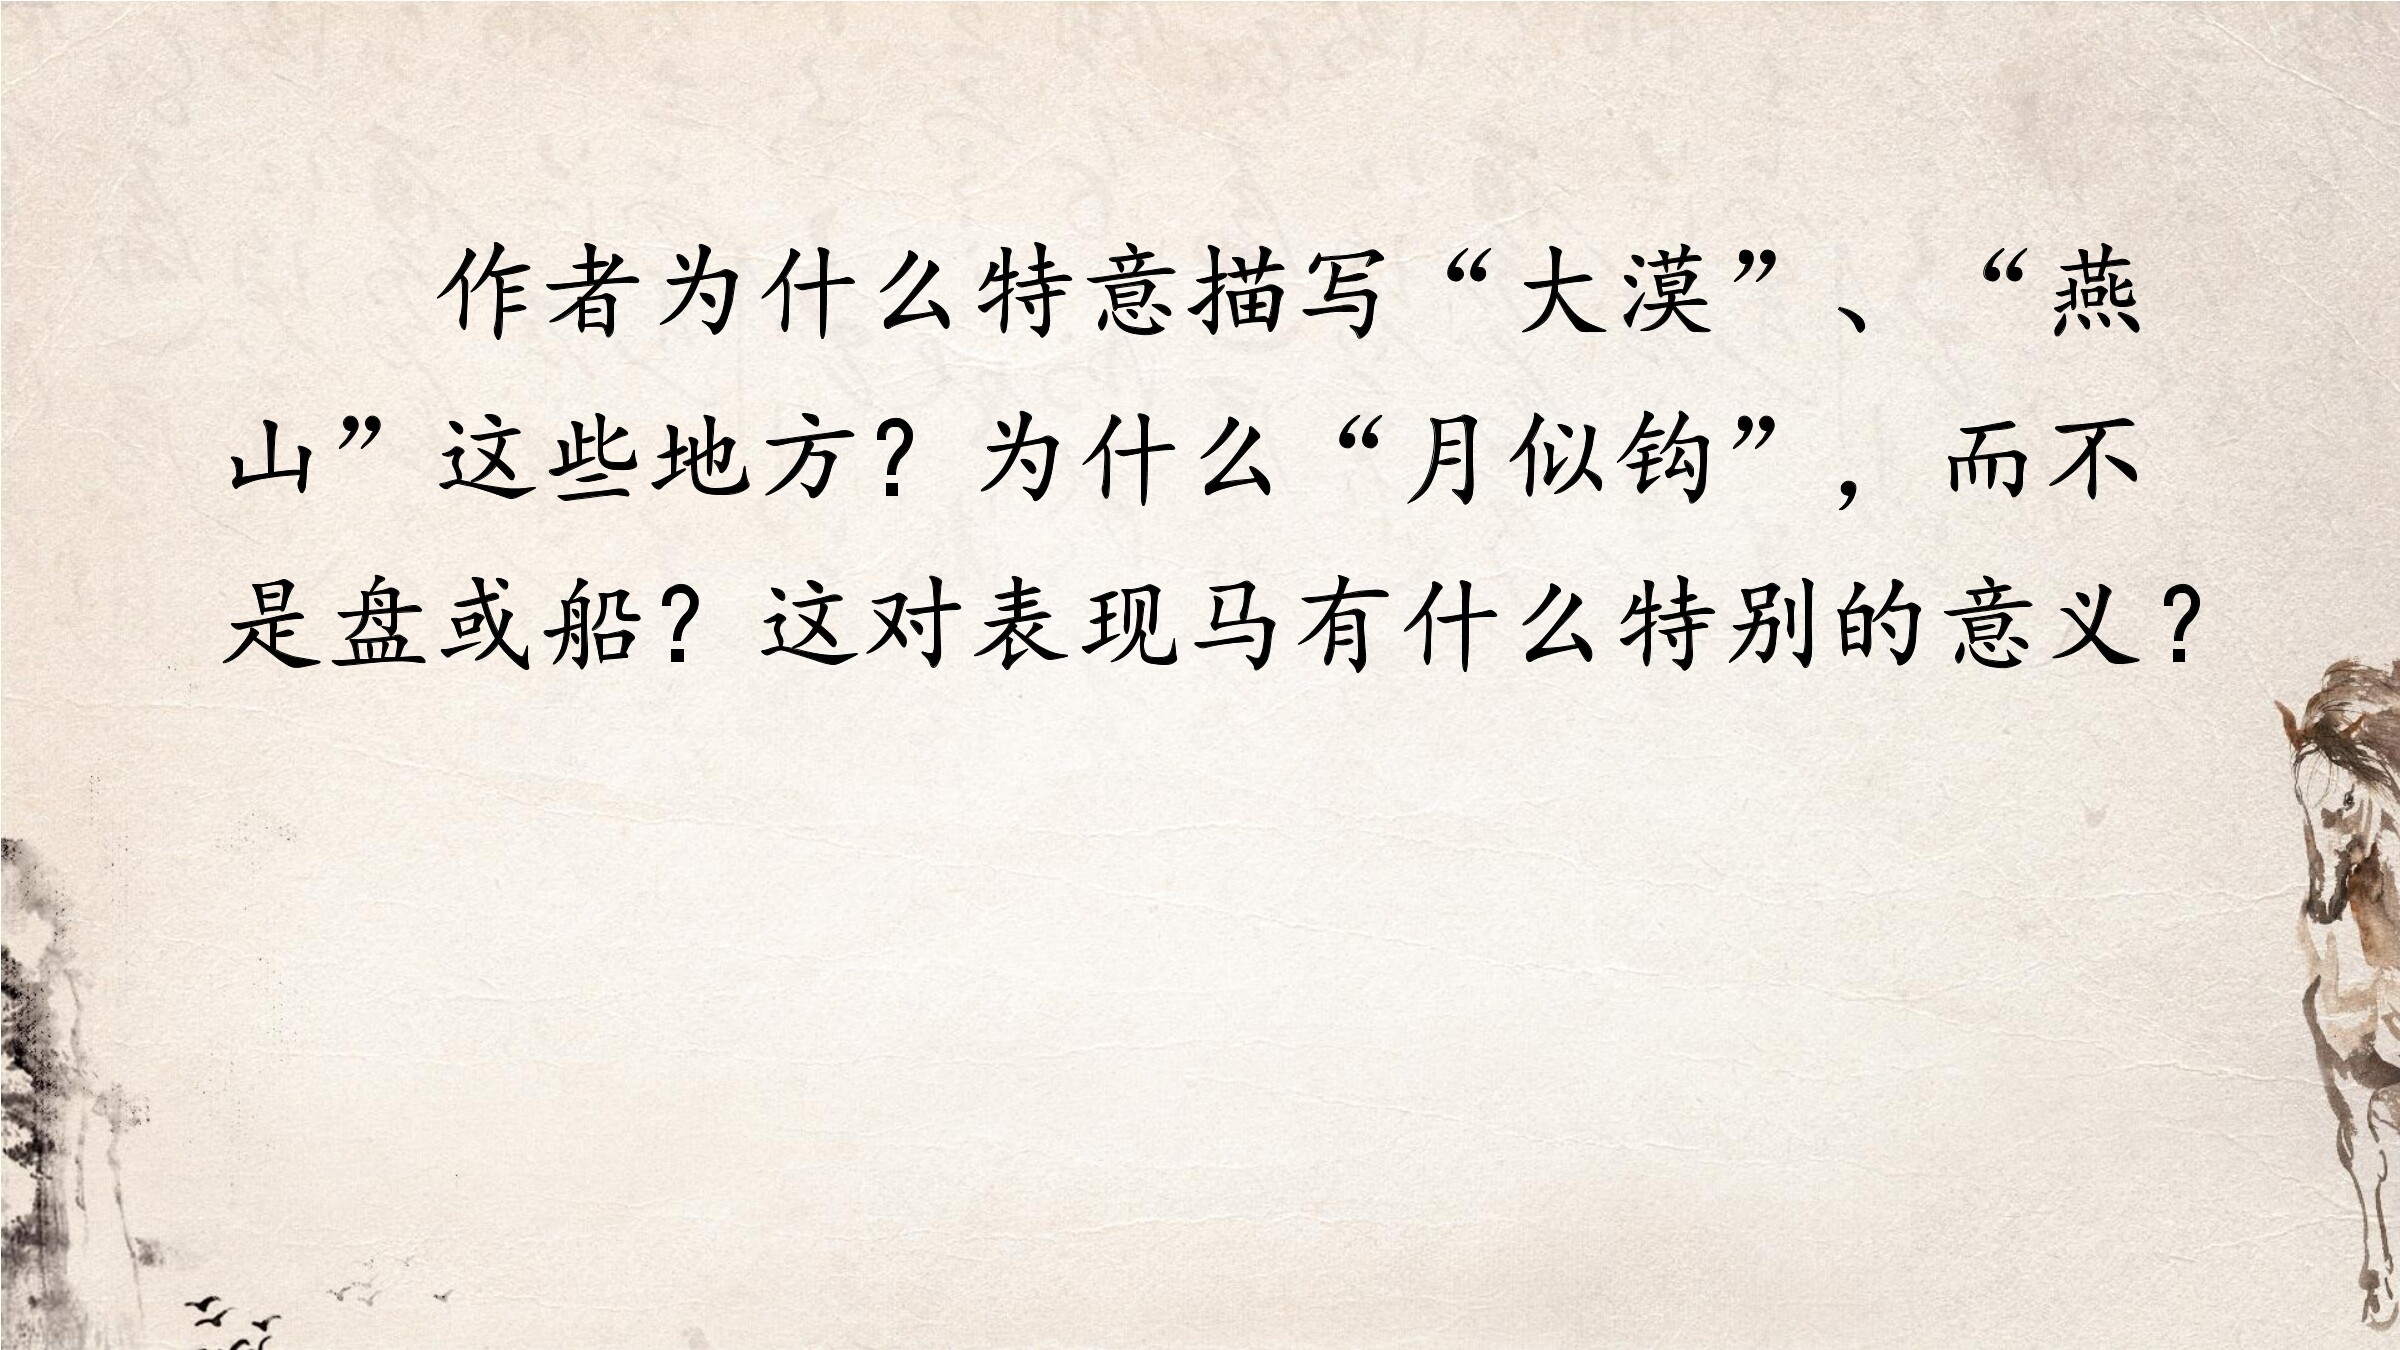 作者为什么特意描写“大漠”、“燕
山”这些地方？为什么“月似钩”，而不
是盘或船？这对表现马有什么特别的意义？